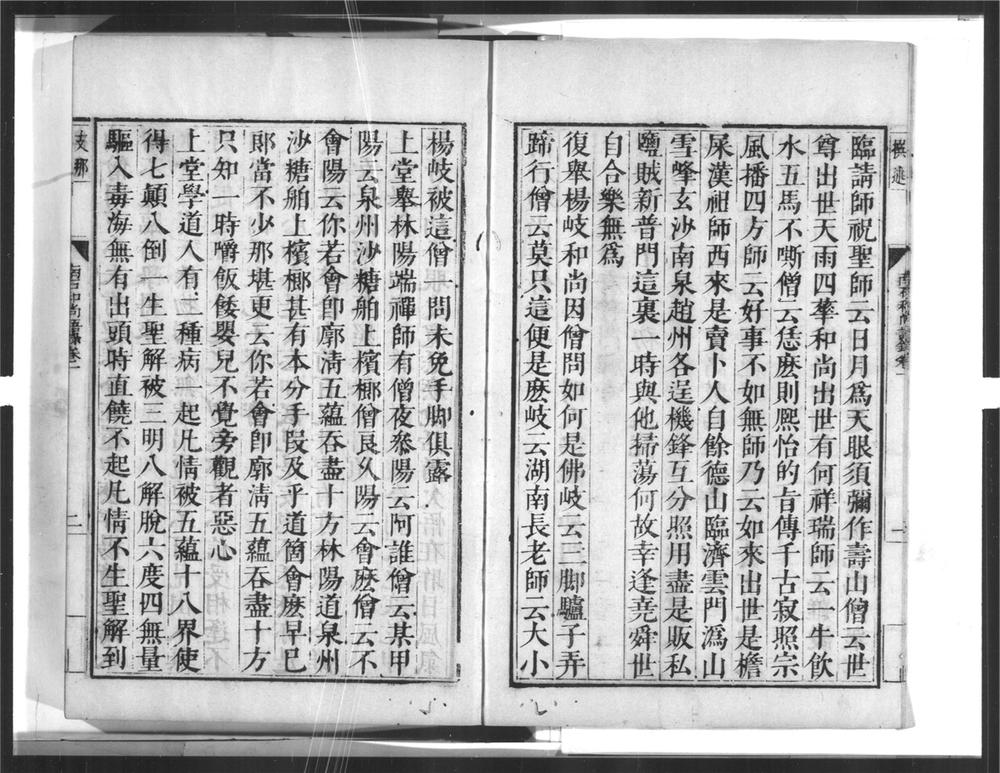 撰述
臨請師祝聖師云日月爲天眼須彌作壽山僧云世
尊出世天雨四華和尚出世有何祥瑞師云一牛飲
水五馬不嘶僧云恁麽則熈怡的旨傳千古寂照宗
風播四方師云好事不如無師乃云如來出世是檐
屎漢祖師西來是賣卜人自餘德山臨濟雲門溈山
雪峰玄沙南泉趙州各逞機鋒互分照用盡是販私
鹽賊新普門這裏一時與他掃蕩何故幸逢堯舜世
自合樂無爲
復舉楊岐和尚因僧問如何是佛岐云三脚驢子弄
蹄行僧云莫只這便是麽岐云湖南長老師云大小
楊岐被這僧一問未免手脚俱露
上堂舉林陽端禪師有僧夜叅陽云阿誰僧云某甲
陽云泉州沙糖舶上檳榔僧良久陽云會麽僧云不
會陽云你若會卽廓淸五蘊吞盡十方林陽道泉州
沙糖舶上檳榔甚有本分手段及乎道箇會麽早已
郎當不少那堪更云你若會卽廓淸五蘊吞盡十方
只知一時嚼飯餧嬰兒不覺旁觀者惡心
上堂學道人有二種病一起凡情被五蘊十八界使
得七顚八倒一生聖解被三明八解脫六度四無量
驅入毒海無有出頭時直饒不起凡情不生聖解到
支那
二